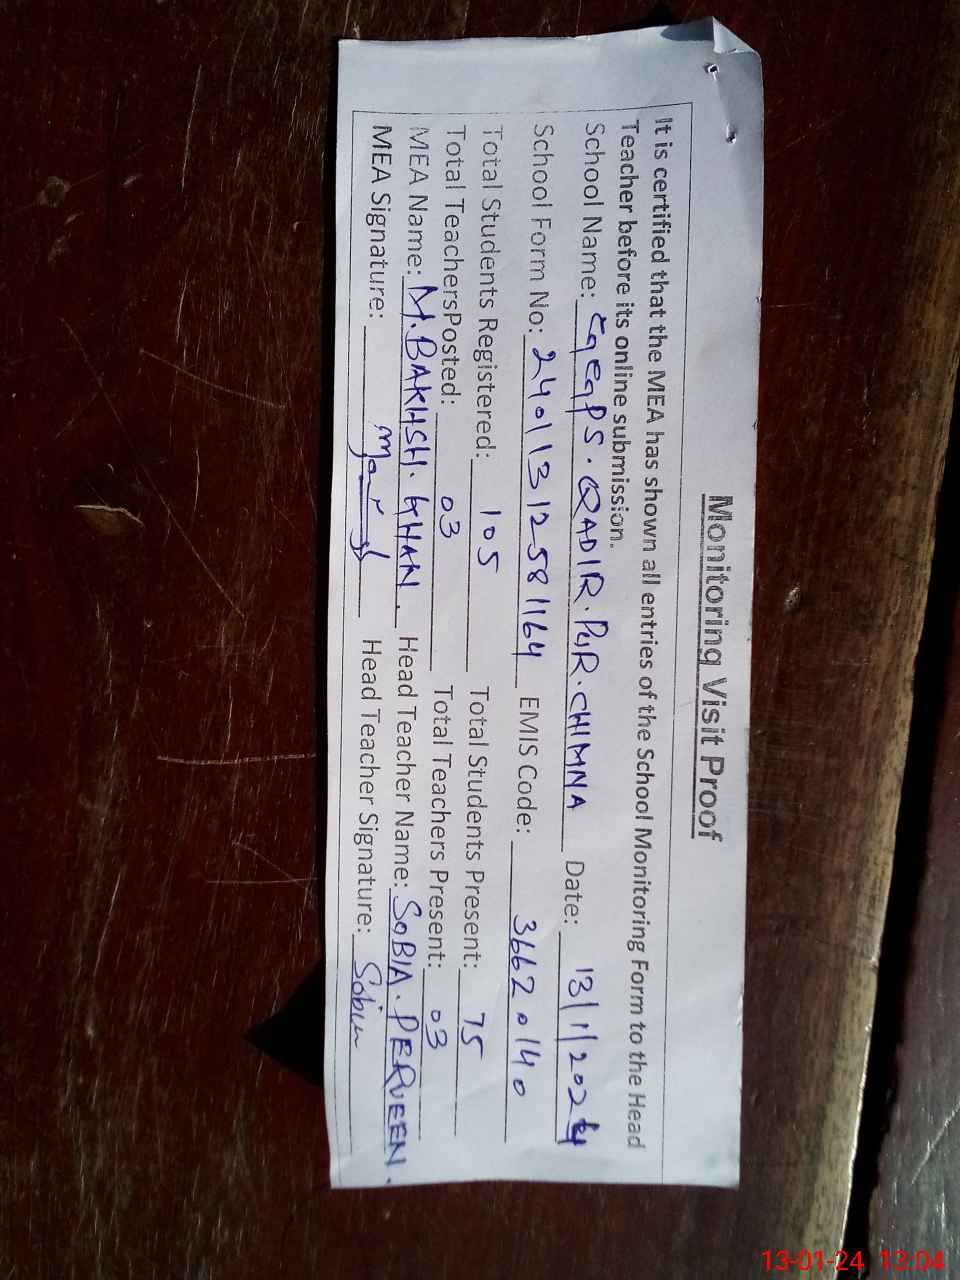 Monitoring Visit Proof
It is certified that the MEA has shown all entries of the School Monitoring Form to the Head
Teacher before its online submission.
School Name: QADIR.PUR.CHIMNA Date: 13/1/2024
School Form No: 24011312581164 EMIS Code:36620140
Total Students Registered: 105 Total Students Present: 75
Total TeachersPosted: 03 Total Teachers Present: 03
MEA Name: M.BAKHSH. Head Teacher Name: SOBIA.PERVEEN.
MEA Signature: Head Teacher Signature: Sobia
13-01-24 13:04